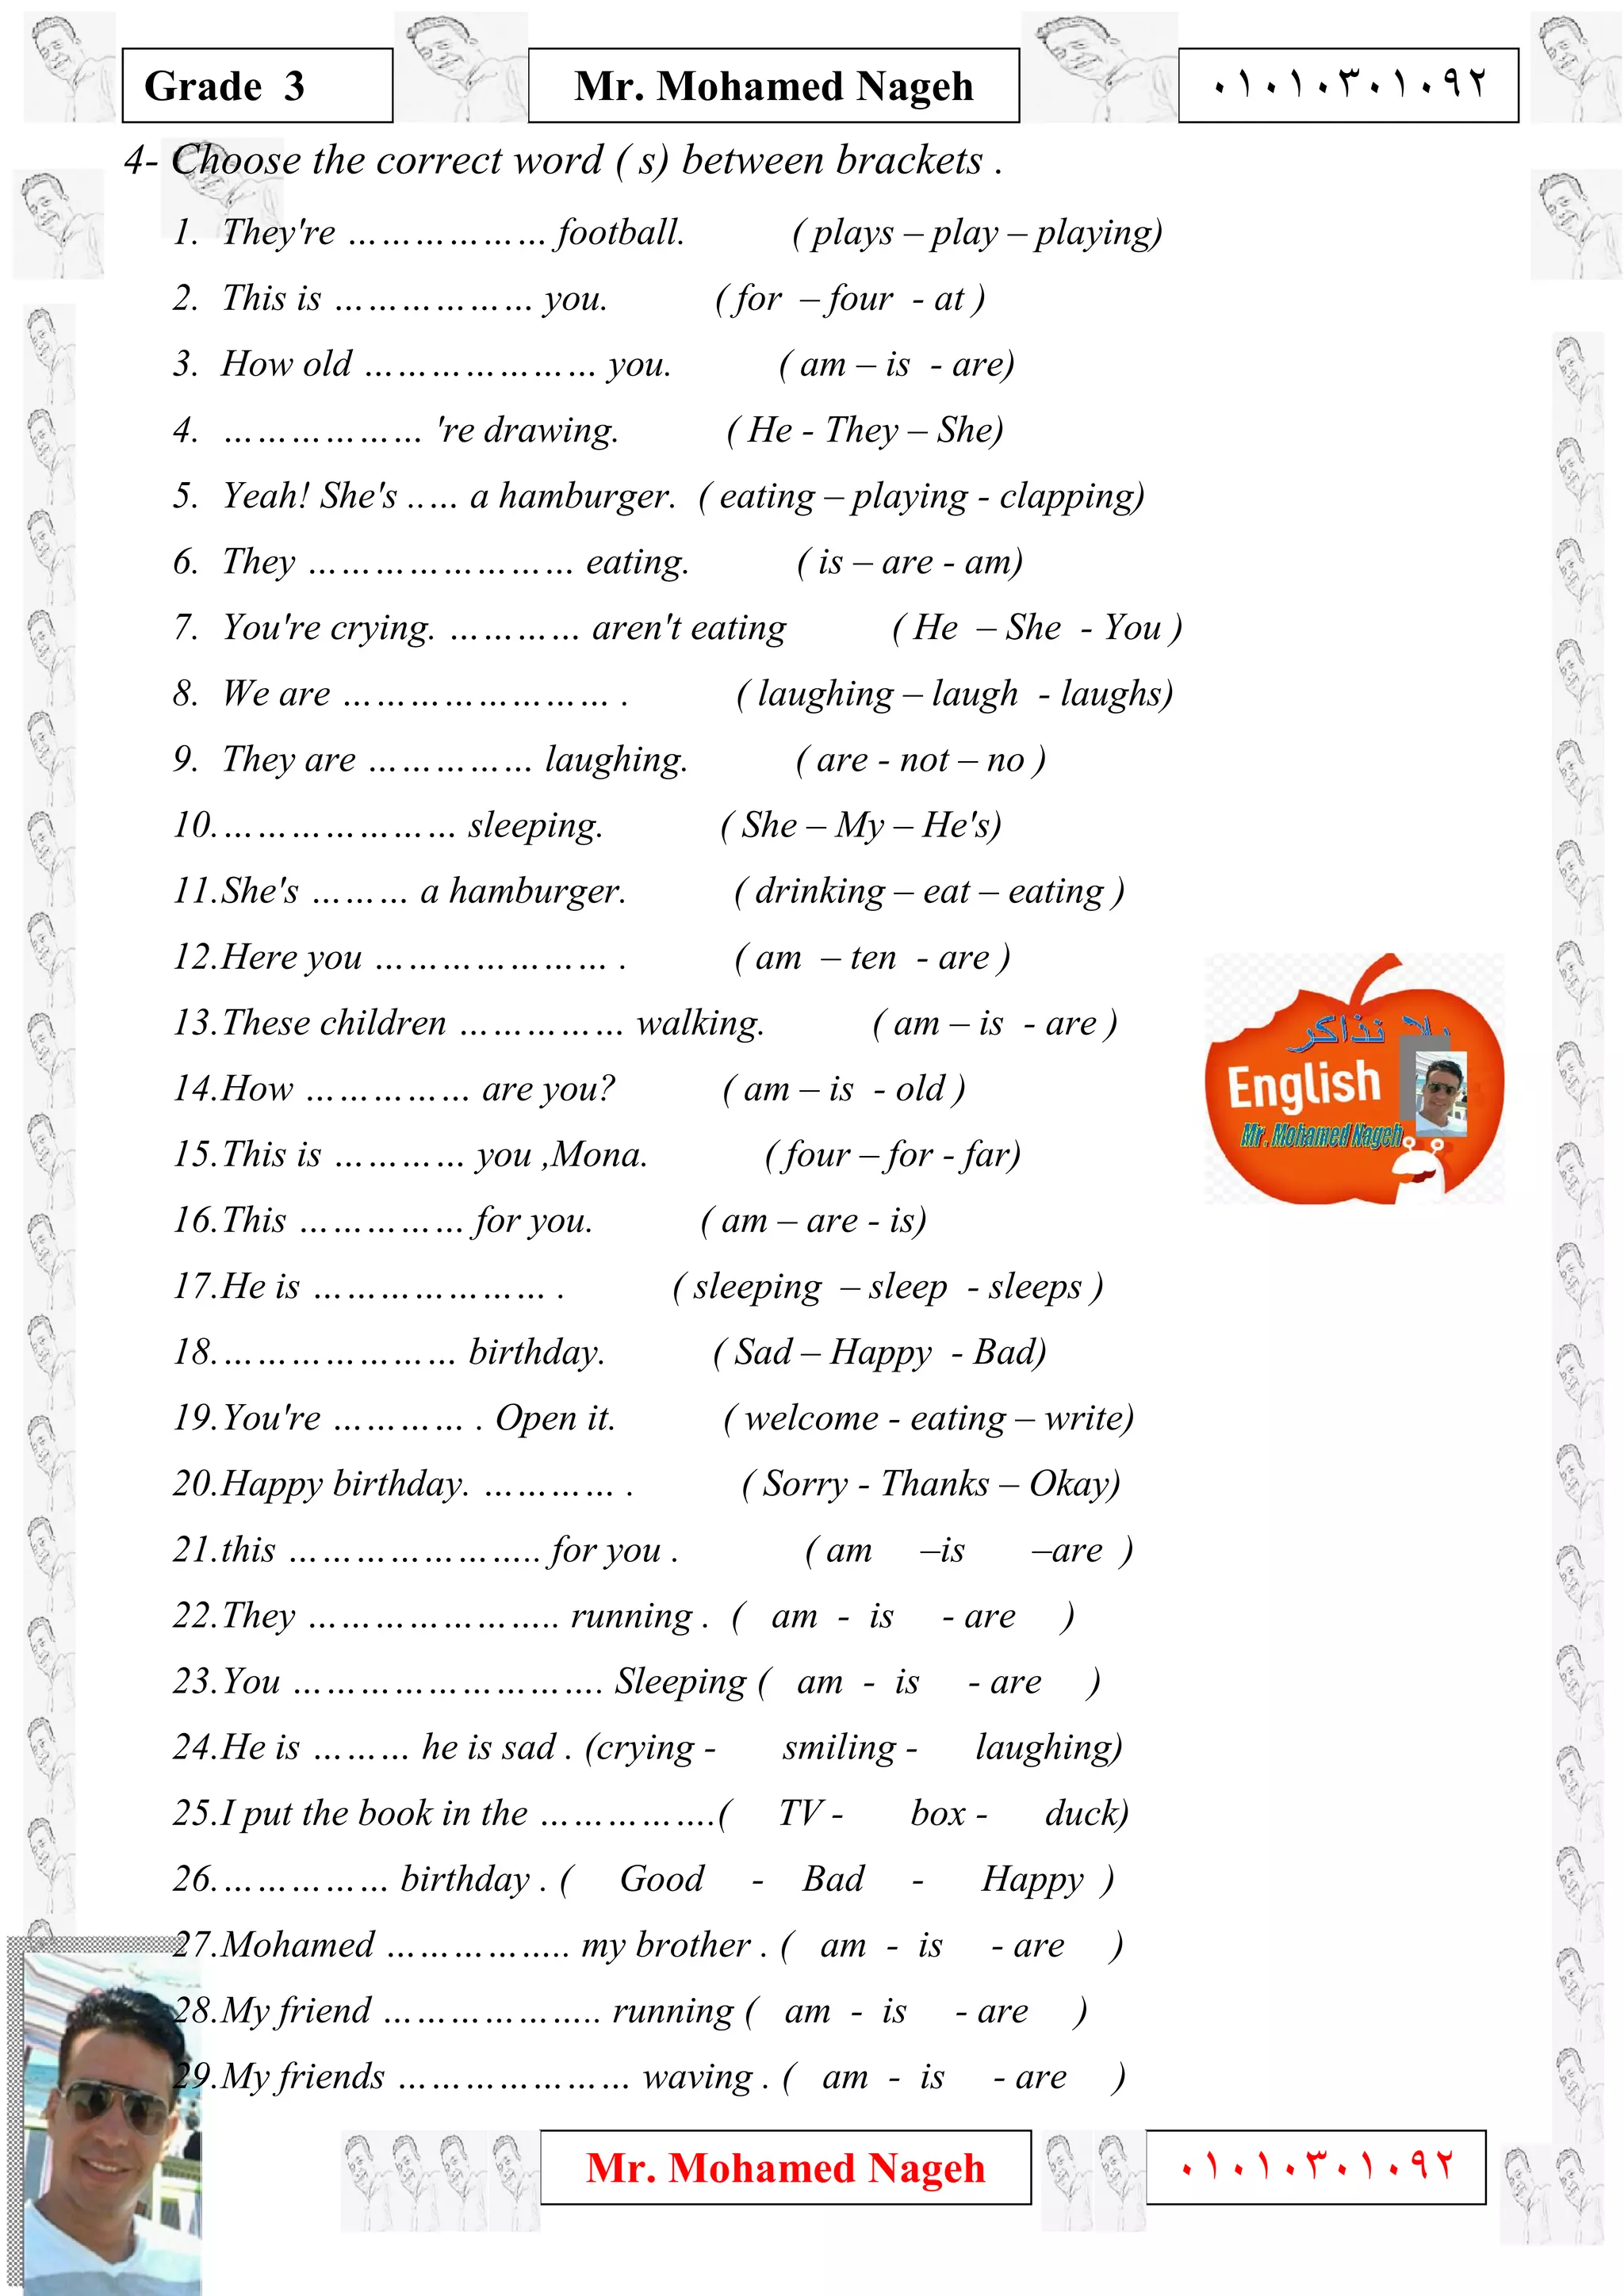 Grade 3
Mr. Mohamed Nageh
٠١٠١٠٣٠١٠٩٢
4- Choose the correct word ( s) between brackets .
1. They're ……………… football. ( plays – play – playing)
2. This is ……………… you. ( for – four - at )
3. How old ………………… you. ( am – is - are)
4. ……………… 're drawing. ( He - They – She)
5. Yeah! She's ..… a hamburger. ( eating – playing - clapping)
6. They …………………… eating. ( is – are - am)
7. You're crying. ………… aren't eating ( He – She - You )
8. We are …………………… . ( laughing – laugh - laughs)
9. They are …………… laughing. ( are - not – no )
10.………………… sleeping. ( She – My – He's)
11.She's ……… a hamburger. ( drinking – eat – eating )
12.Here you ………………… . ( am – ten - are )
13.These children …………… walking. ( am – is - are )
14.How …………… are you? ( am – is - old )
15.This is ………… you ,Mona. ( four – for - far)
16.This …………… for you. ( am – are - is)
17.He is ………………… . ( sleeping – sleep - sleeps )
18.………………… birthday. ( Sad – Happy - Bad)
19.You're ………… . Open it. ( welcome - eating – write)
20.Happy birthday. ………… . ( Sorry - Thanks – Okay)
21.this ………………….. for you . ( am –is –are )
22.They ………………….. running . ( am - is - are )
23.You ………………………. Sleeping ( am - is - are )
24.He is ……… he is sad . (crying - smiling - laughing)
25.I put the book in the …………….( TV - box - duck)
26.…………… birthday . ( Good - Bad - Happy )
27.Mohamed …………….. my brother . ( am - is - are )
28.My friend ……………….. running ( am - is - are )
29.My friends ………………… waving . ( am - is - are )
يلا نذاكر
English
Mr. Mohamed Nageh
Mr. Mohamed Nageh
٠١٠١٠٣٠١٠٩٢